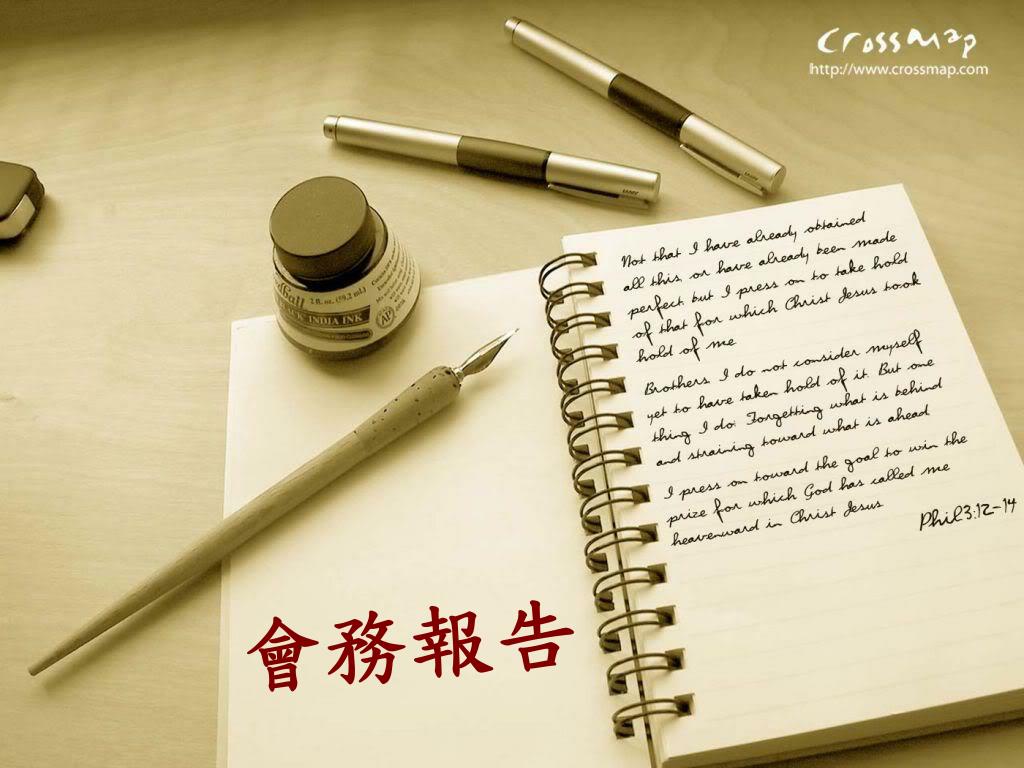 crossmap
http://www.crossmap.com
Not that I have already obtained
all this, or have already been made
perfect but I press on to take hold
of that for which Christ Jesus took
hold of me
Brothers I do not consider myself
yet to have taken hold of it. But one
thing I do: Forgetting what is behind
and straining toward what is ahead
I press on toward the goal to win the
prize for which God has called me
heavenward in Christ Jesus
Phil3:12-14
2 fl. oz. (59.2 mL)
BLACK INDIA INK
AP
會務報告